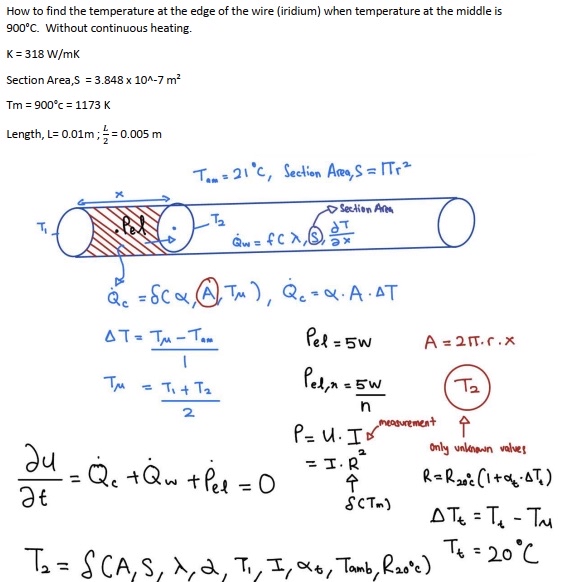 How to find the temperature at the edge of the wire (iridium) when temperature at the middle is
900°C. Without continuous heating.
K = 318 W/mK
Section Area,S = 3.848 x 10^-7 m²
Tm = 900°c = 1173 K
Length, L= 0.01m ; L/2 = 0.005 m
Tam = 21°C, Section Area, S = πr²
x
Section Area
T₁
Pel
T₂
Q̇w = f(λ, S, ∂T/∂x
Q̇c = f(α, A, TM), Q̇c = α · A · ΔT
ΔT = TM - Tam
Pel = 5W
A = 2π.r.x
TM = T₁ + T₂ / 2
Pel,n = 5W / n
T₂
P = U · I
measurement
only unknown values
= I · R²
f(Tm)
R = R20°c (1 + αt · ΔTt)
∂u/∂t = Q̇c + Q̇w + Ṗel = 0
ΔTt = Tt - TM
Tt = 20°C
T₂ = f(A, S, λ, α, T₁, I, αt, Tamb, R20°c)